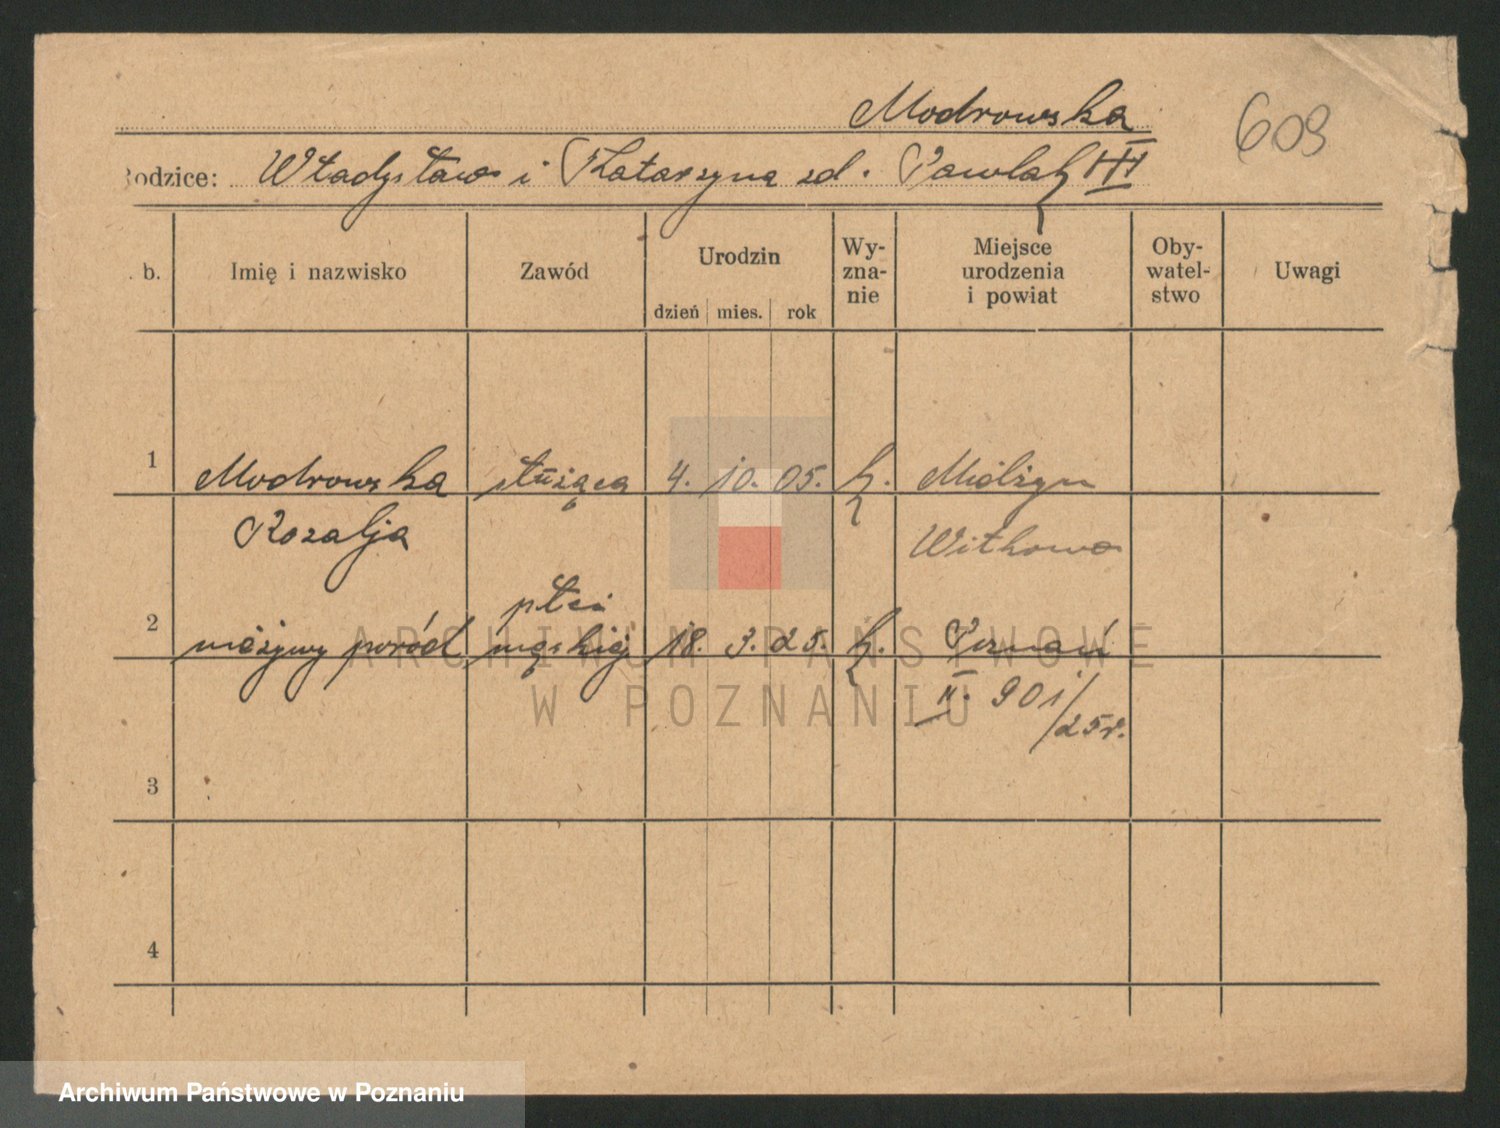 Modrowska
609
Rodzice: Władysław i Katarzyna zd. Pawlak III
. b. Imię i nazwisko Zawód Urodzin dzień mies. rok Wy-zna-nie Miejsce urodzenia i powiat Oby-watel-stwo Uwagi
1 Modrowska służąca 4. 10. 05. k.
Rozalja Witkowo
płci
2 nieżywy poród męskiej 18. 3. 25. k. Poznań
II. 901/25r.
3
4
ARCHIWUM PAŃSTWOWE
W POZNANIU
Archiwum Państwowe w Poznaniu